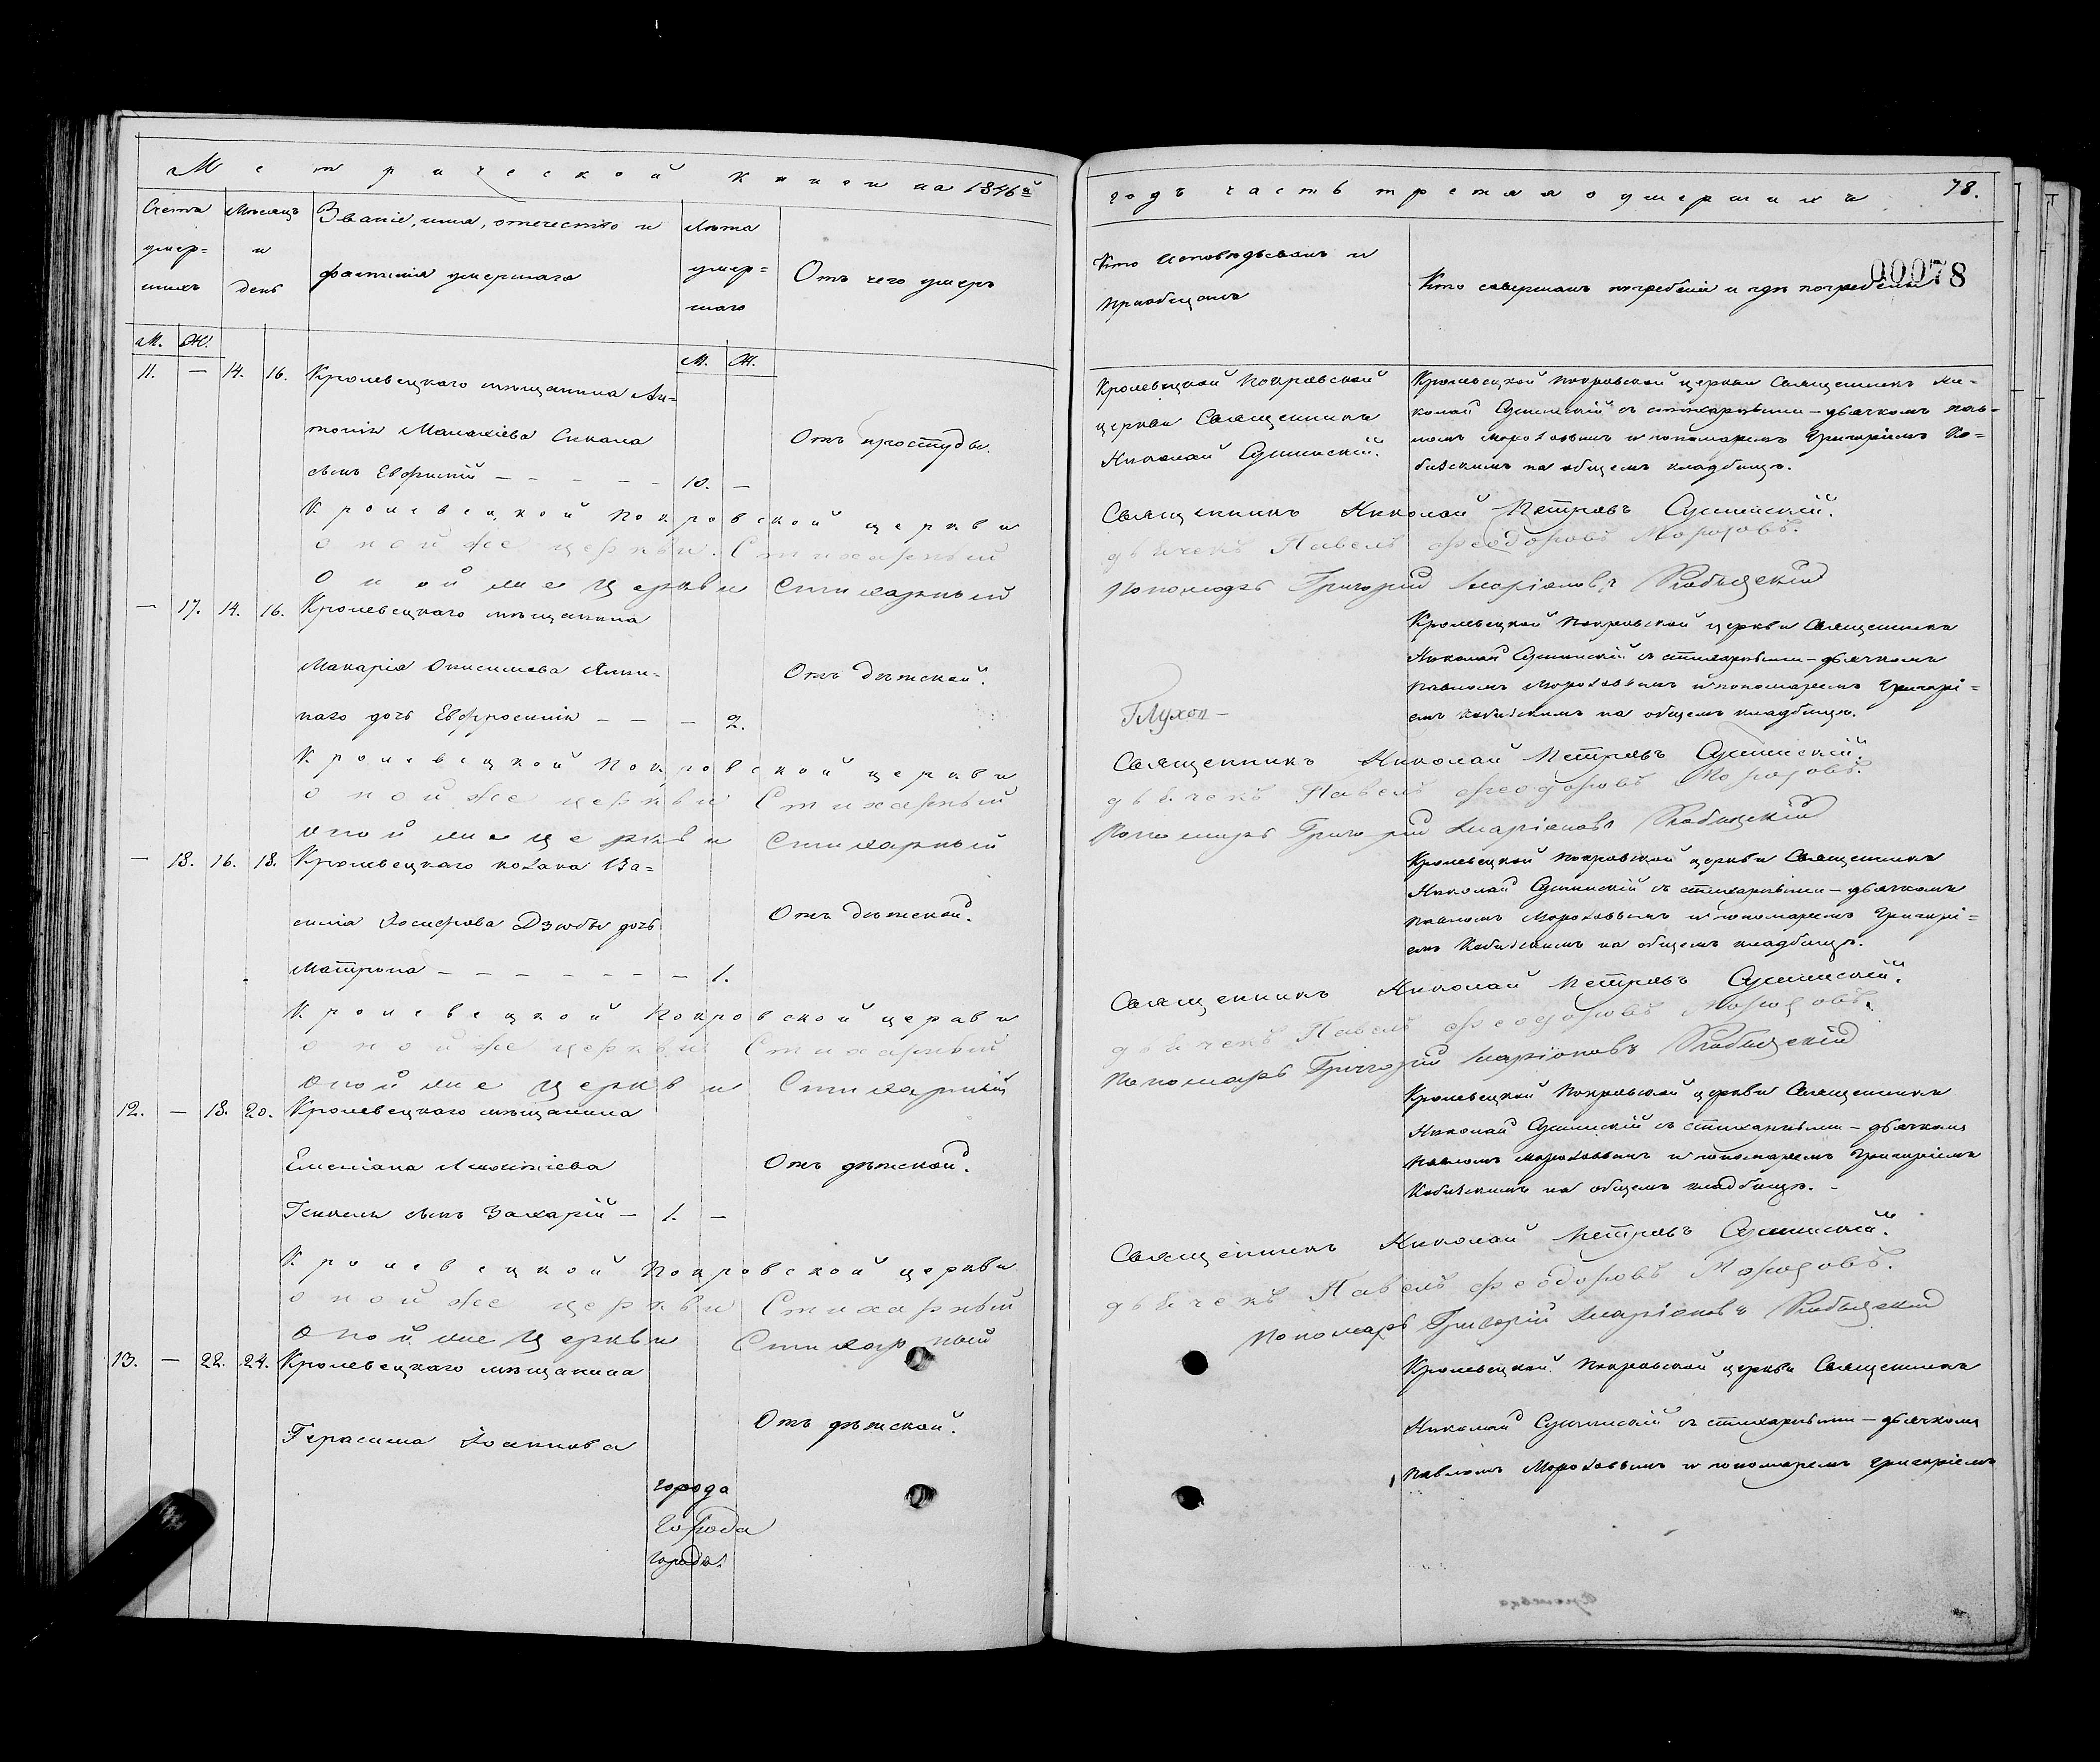 Метрической книги на 1846й
Счетъ умер= шихъ
Мѣсяцъ и день
Званіе, имя, отечество и
фамилія умершаго
Лѣта умер= шаго
Отъ чего умеръ
М. Ж.
М. Ж.
11. — 14. 16. Кролевецкаго мѣщанина Ан=
тонія Малахіева
сынъ Евфимій — — — — — 10. —
Отъ простуды.
Кролевецкой Покровской церкви
оной же церкви Стихарный
Оной же Церкви Стихарный
— 17. 14. 16. Кролевецкаго мѣщанина
Макарія Онисимова
наго дочь Евфросинія — — — 2.
Отъ дѣтской.
Кролевецкой Покровской церкви
оной же церкви Стихарный
оной же церкви Стихарный
— 18. 16. 18. Кролевецкаго козака Ва=
силія Іосифова Дзюбы дочь
Матрона — — — — — — — 1.
Отъ дѣтской.
Кролевецкой Покровской церкви
оной же церкви Стихарный
оной же Церкви Стихарный
12. — 18. 20. Кролевецкаго мѣщанина
Емеліана
сынъ Захарій — 1. —
Отъ дѣтской.
Кролевецкой Покровской церкви
оной же церкви Стихарный
оной же Церкви Стихарный
13. — 22. 24. Кролевецкаго мѣщанина
Герасима Іоаннова
Отъ дѣтской.
города
города
города
годъ часть третяя о умершихъ 78.
Кто исповѣдывалъ и
пріобщалъ
Кто совершалъ погребеніе и гдѣ погребены
00078
Кролевецкой Покровской
церкви Священникъ
Николай Сушинскій.
Кролевецкой Покровской церкви Священникъ Ни=
колай Сушинскій съ стихарными — дьячкомъ Пав=
ломъ Морозовымъ и пономаремъ Григоріемъ Ко=
бизскимъ на общемъ кладбищѣ.
Священникъ Николай Петровъ Сушинскій.
дьячекъ Павелъ Феодоровъ Морозовъ.
Пономарь Григорій Иларіоновъ Кобызскій
Кролевецкой Покровской церкви Священникъ
Николай Сушинскій съ стихарными — дьячкомъ
Павломъ Морозовымъ и пономаремъ Григорі=
емъ Кобизскимъ на общемъ кладбищѣ.
Глухон —
Священникъ Николай Петровъ Сушинскій.
дьячекъ Павелъ Феодоровъ Морозовъ.
Пономарь Григорій Иларіоновъ Кобызскій
Кролевецкой Покровской церкви Священникъ
Николай Сушинскій съ стихарными — дьячкомъ
Павломъ Морозовымъ и пономаремъ Григорі=
емъ Кобизскимъ на общемъ кладбищѣ.
Священникъ Николай Петровъ Сушинскій.
дьячекъ Павелъ Феодоровъ Морозовъ.
Пономарь Григорій Иларіоновъ Кобызскій
Кролевецкой Покровской церкви Священникъ
Николай Сушинскій съ стихарными — дьячкомъ
Павломъ Морозовымъ и пономаремъ Григоріемъ
Кобизскимъ на общемъ кладбищѣ. —
Священникъ Николай Петровъ Сушинскій.
дьячекъ Павелъ Феодоровъ Морозовъ.
Пономарь Григорій Иларіоновъ Кобызскій
Кролевецкой Покровской церкви Священникъ
Николай Сушинскій съ стихарными — дьячкомъ
Павломъ Морозовымъ и пономаремъ Григоріемъ